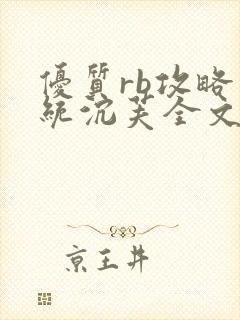 優質rb攻略
統沉芙全文
京王井